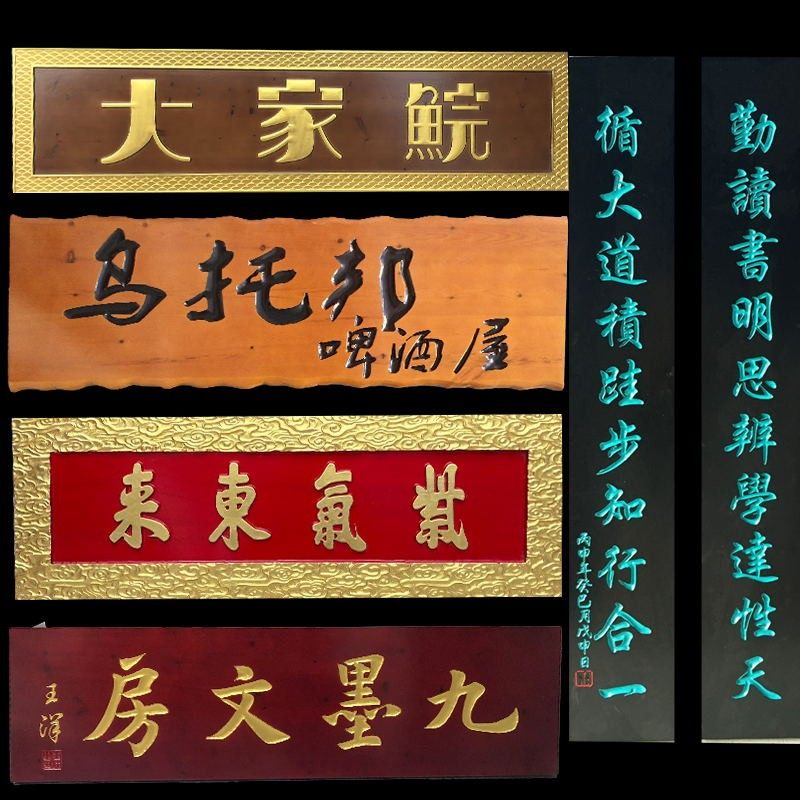 大家鯇
乌托邦
啤酒屋
紫氣東来
九墨文房
王洋
勤讀書明思辨學達性天
循大道積跬步知行合一
丙申年癸巳月戊申日